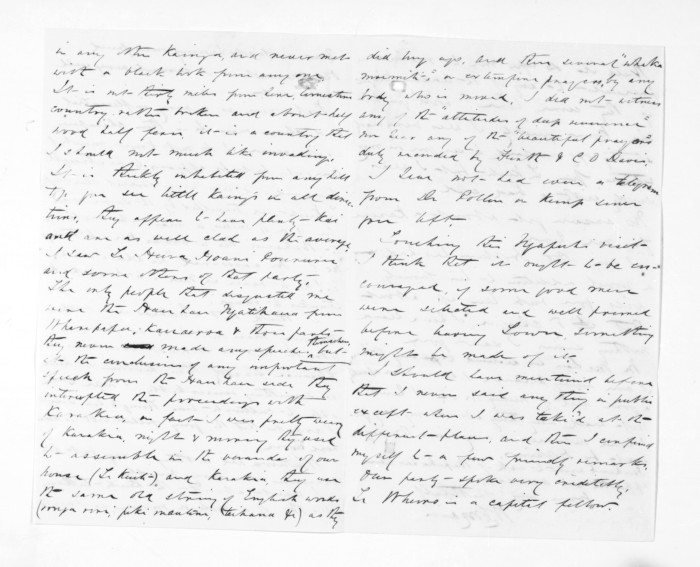 in any other Kainga, and never met
with a black look from any one.
It is not thirty miles from here,
country rather broken and about half
wood half fern it is a country that
I should not much like invading.
It is thickly inhabited from any hill
top you see little Kaingas in all direc
tions, they appear to have plenty Kai
and are as well clad as the average
I saw Te Hura, Hoani
and some others of that party.
The only people that disgusted me
were the Hau hau Ngatihaus from
Whenpapa, & those parts
they never made any speeches themselves but
at the conclusion of any important
speech from the Hau hau side they
intercepted the proceedings with
Karakia, in fact I was pretty weary
of Karakia, night & morning they used
to assemble in the verandar of our
house (Te Kuiti) and Karakia, they use
the same old string of English words
(ronga rini, piki mautini, taihana &c) as they
did long ago, and then several "whaka
moemiti", or extempore prayers, by any
body who is moved. I did not witness
any of the "attitudes of deep reverence"
nor hear any of the "beautiful prayers"
duly recorded by & C O Davis.
I have not had even a telegram
from Dr Pollen or Kemp since
you left.
Touching this Ngapuhi visit
I think that it ought to be en=
couraged, if some good men
were selected and well primed
before having Lower something
might be made of it.
I should have mentioned before
that I never said any thing in public
except when I was taki'd at the
different places, and then I confined
myself to a few friendly remarks.
Our party spoke very creditably,
Te Wheoro is a capital fellow.